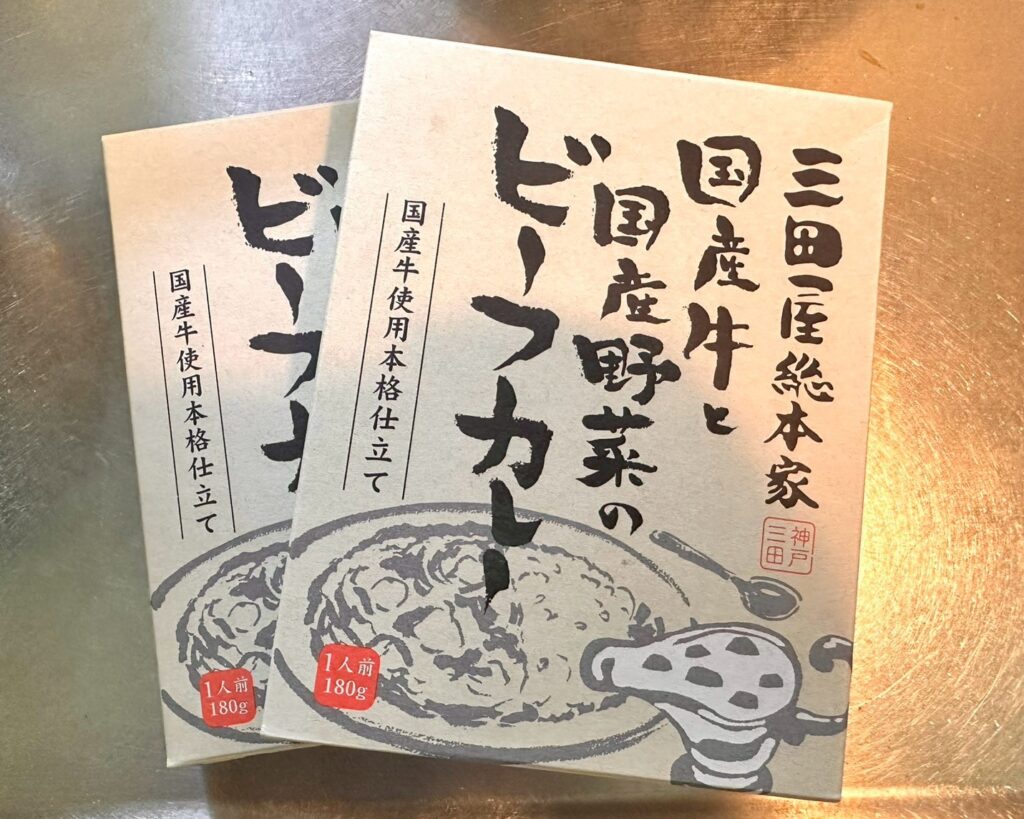 三田屋総本家
神戸
三田
国産牛と
国産野菜の
ビーフカレー
国産牛使用本格仕立て
1人前
180g
ビーフカ
国産牛使用本格仕立て
1人前
180g